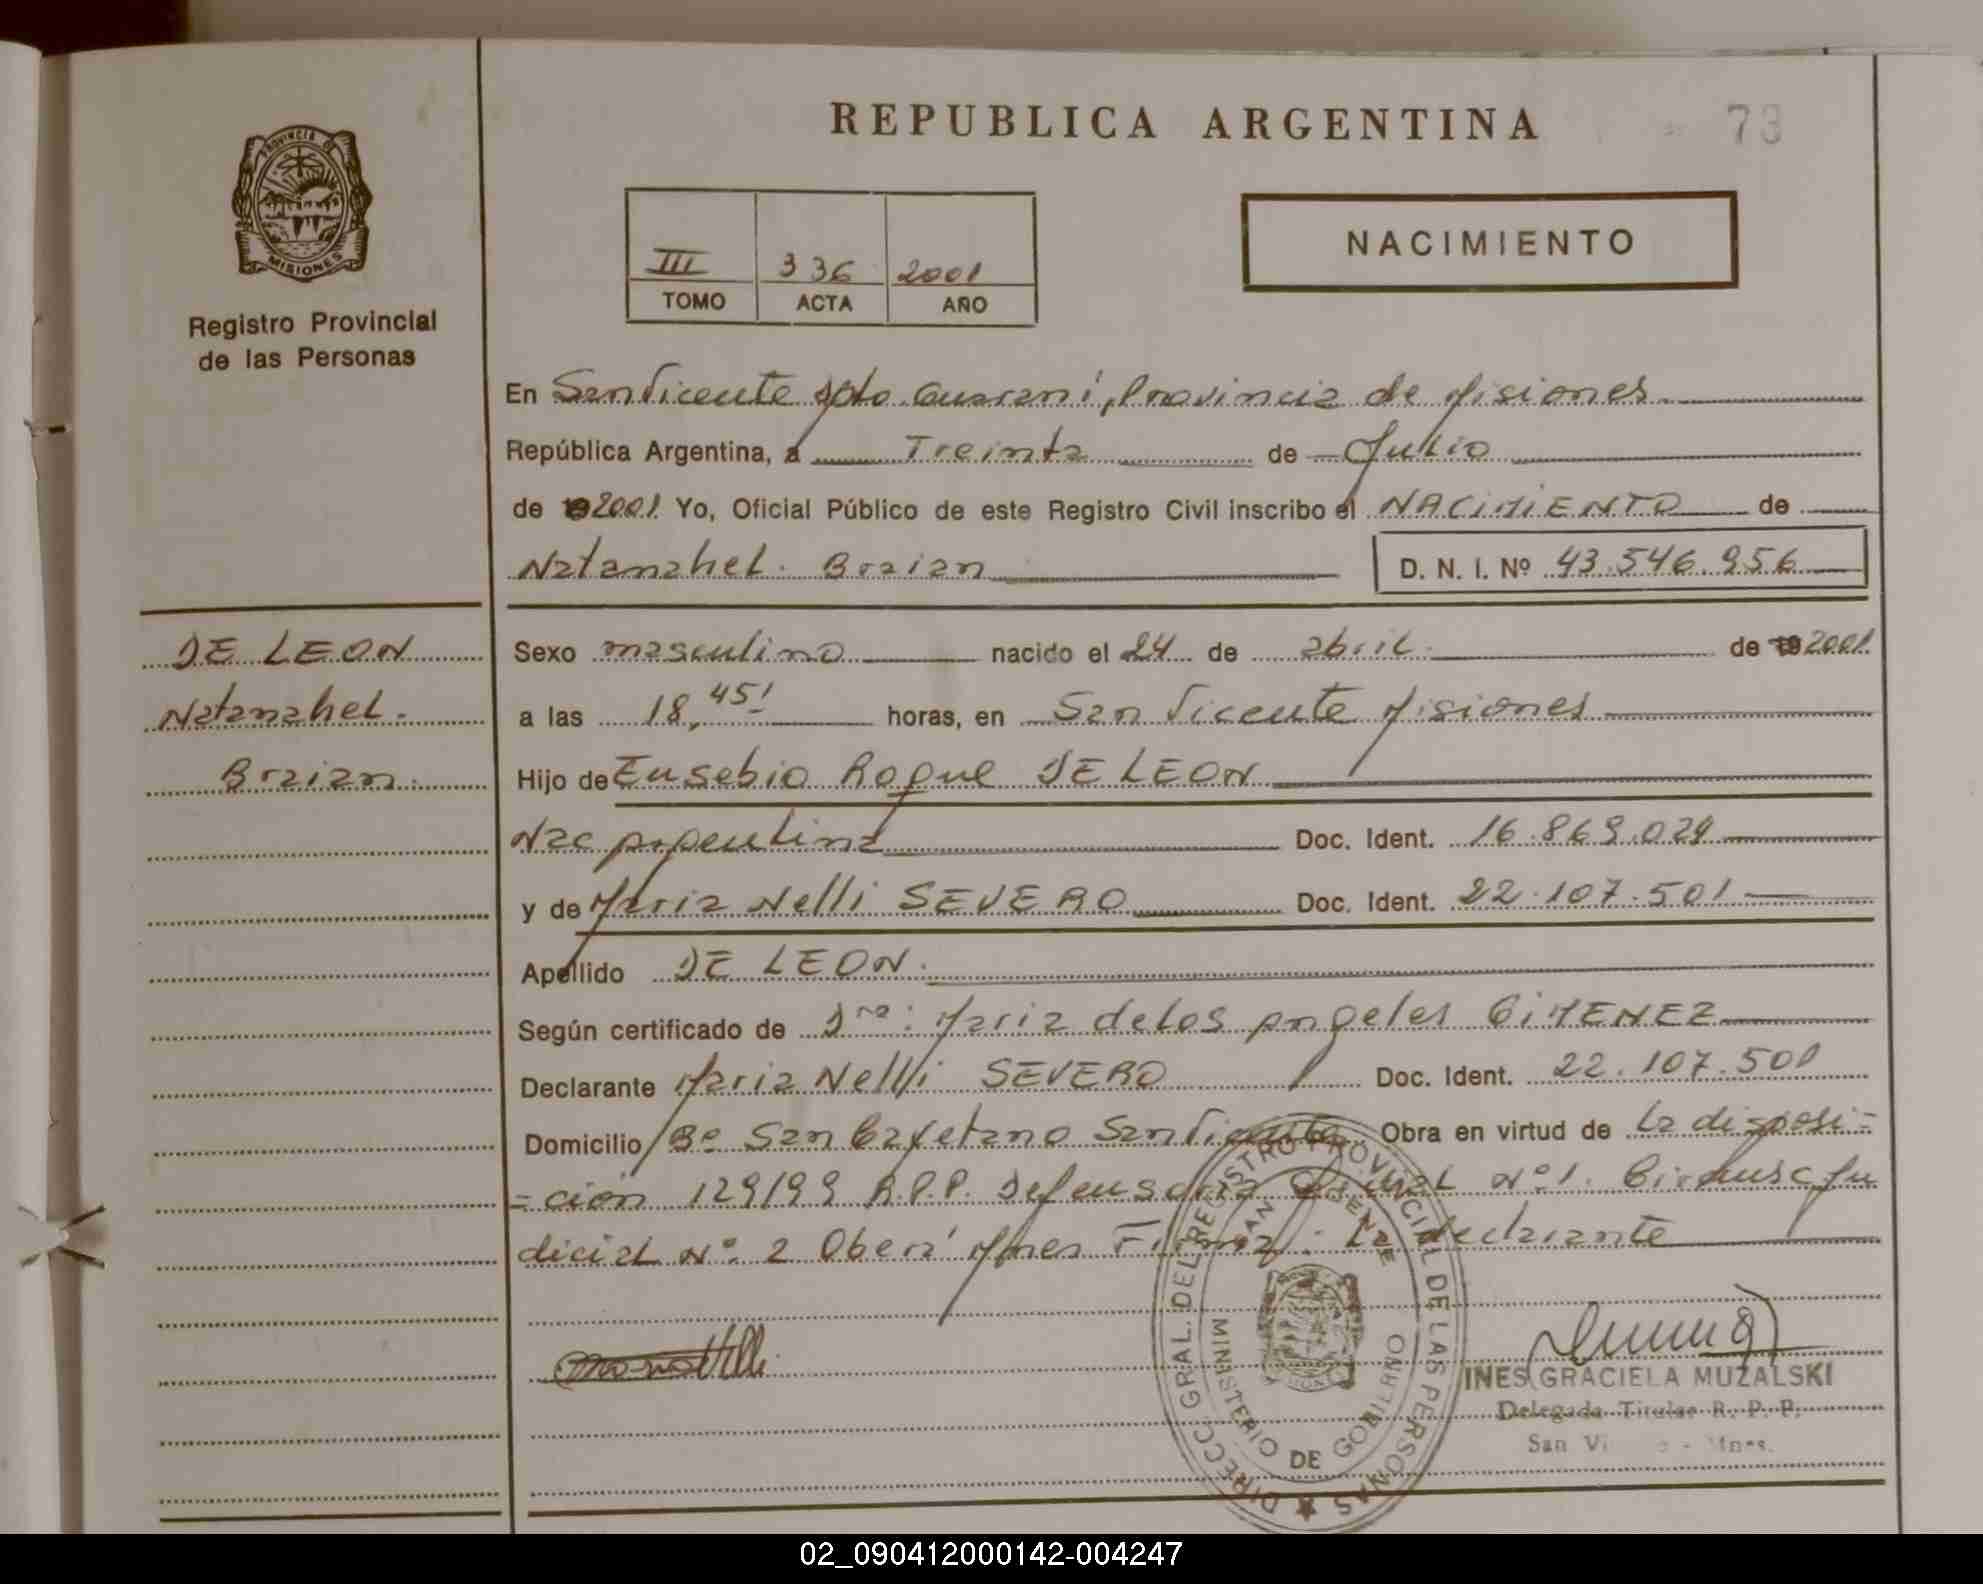 REPUBLICA ARGENTINA
73
PROVINCIA D
MISIONES
Registro Provincial
de las Personas
III 336 2001
TOMO ACTA AÑO
NACIMIENTO
En San Vicente Dpto. Guaraní, Provincia de Misiones
República Argentina, a Treinta de Julio
de 2001 Yo, Oficial Público de este Registro Civil inscribo el NACIMIENTO de
Natanahel. Braian D. N. I. Nº 43.546.956
DE LEON
Natanahel.
Braian.
Sexo masculino nacido el 24 de abril de 2001
a las 18,45' horas, en San Vicente Misiones
Hijo de Eusebio Roque DE LEON
Nac Argentina Doc. Ident. 16.869.029
y de Maria Nelli SEVERO Doc. Ident. 22.107.501
Apellido DE LEON.
Según certificado de Dra: Maria de Los Angeles GiMENEZ
Declarante Maria Nelli SEVERO Doc. Ident. 22.107.501
Domicilio Bº San Cayetano San Vicente Obra en virtud de La disposi=
=ción 129/99 R.P.P. Defensoria Oficial Nº1. Circunsc Ju
dicial Nº. 2 Oberá Mnes Firma: La declarante
DIRECC. GRAL. DEL REGISTRO PROVINCIAL DE LAS PERSONAS
SAN VICENTE
MINISTERIO DE GOBIERNO
INES GRACIELA MUZALSKI
Delegada Titular R. P. P.
San Vi - Mnes.
02_090412000142-004247